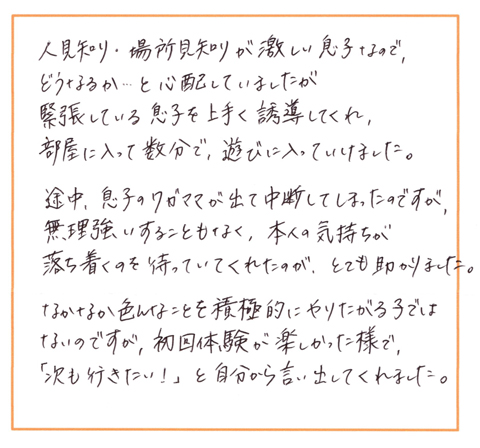 人見知り・場所見知りが激しい息子なので、
どうなるか…と心配していましたが
緊張している息子を上手く誘導してくれ、
部屋に入って数分で、遊びに入っていけました。
途中、息子のワガママが出て中断してしまったのですが、
無理強いすることもなく、本人の気持ちが
落ち着くのを待っていてくれたのが、とても助かりました。
なかなか色んなことを積極的にやりたがる子では
ないのですが、初回体験が楽しかった様で、
「次も行きたい！」と自分から言い出してくれました。